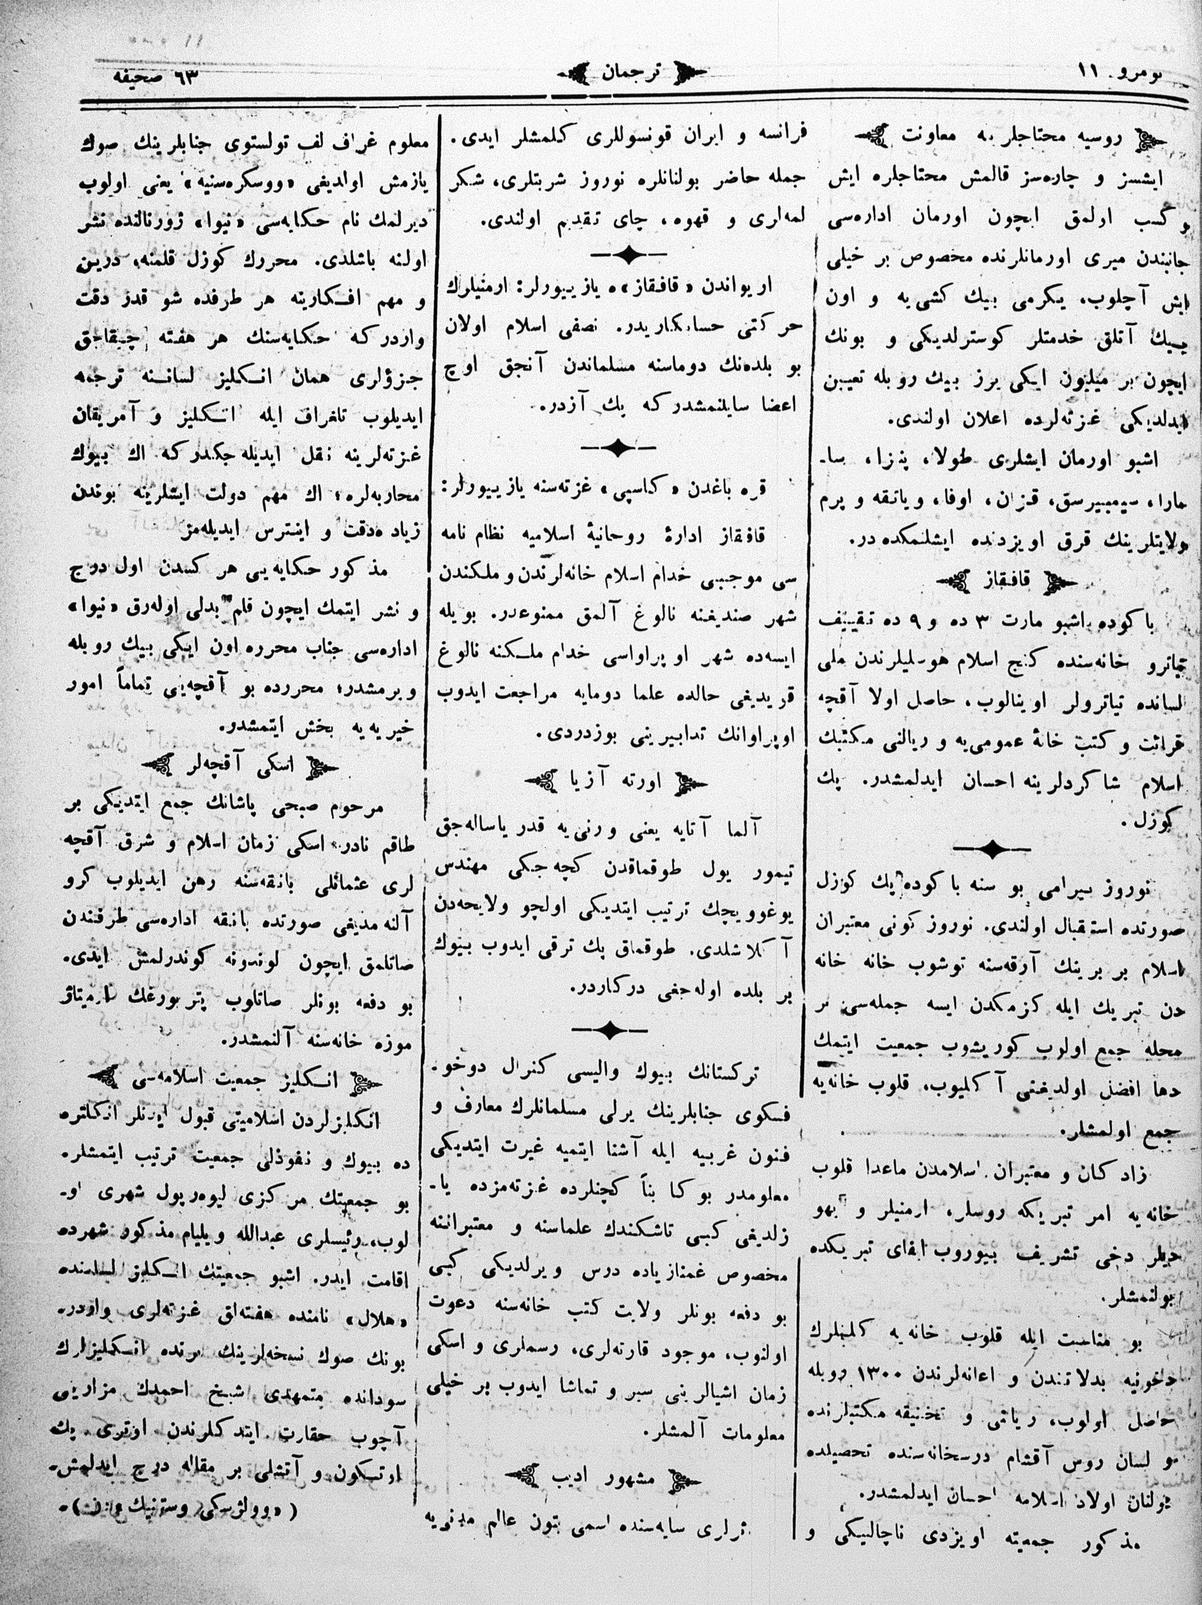 نومرو ۱۱
ترجمان
۶۳ صحیفه
روسیه محتاجلرینه معاونت
ایشسز و چاره‌سز قالمش محتاجلره ایش
و کسب اولمق ایچون اورمان اداره‌سی
جانبندن میری اورمانلرنده مخصوص بر خیلی
ایش آچلوب، یکرمی بیك کشی‌یه و اون
بیك آتلق خدمتلر کوسترلدیکی و بونك
ایچون بر میلیون ایکی یوز بیك روبله تعیین
ایدلدیکی غزته‌لرده اعلان اولندی.
اشبو اورمان ایشلری طولا، پنزا، سا-
مارا، سیمبیرسق، قزان، اوفا، ویاتقه و پرم
ولایتلرینك قرق اویزدنده ایشلنمکده در.
قافقاز
باکوده اشبو مارت ۳ ده و ۹ ده تقییف
تیاترو خانه‌سنده کنج اسلام هوسلیلرندن ملی
لسانده تیاترولر اوینالوب، حاصل اولا آقچه
قرائت و کتب خانهٔ عمومی‌یه و ریالنی مکتبك
اسلام شاکردلرینه احسان ایدلمشدر. پك
کوزل.
نوروز بیرامی بو سنه باکوده پك کوزل
صورتده استقبال اولندی. نوروز کونی معتبران
اسلام بر برینك آرقه‌سنه توشوب خانه خانه
دن تبریك ایله کزمکدن ایسه جمله‌سی بر
محله جمع اولوب کوریشوب جمعیت ایتمك
دها افضل اولدیغنی آکلیوب، قلوب خانه‌یه
جمع اولمشلر.
زادکان و معتبران اسلامدن ماعدا قلوب
خانه یه امر تبریکه روسلر، ارمنیلر و یهو
دیلر دخی تشریف بیوروب ایفای تبریکده
بولنمشلر.
بو مناسبت ایله قلوب خانه یه کلنلرك
دخولیه بدلاتندن و اعانه‌لرندن ۱۳۰۰ روبله
حاصل اولوب، ریالنی و تخنیقه مکتبلرنده
و لسان روس آقشام درسخانه‌سنده تحصیلده
بولنان اولاد اسلامه احسان ایدلمشدر.
مذکور جمعیته اویزدی ناچالنیکی و
فرانسه و ایران قونسوللری کلمشلر ایدی.
جمله حاضر بولنانلره نوروز شربتلری، شکر
لمه‌لری و قهوه، چای تقدیم اولندی.
اریواندن «قافقاز»ه یازییورلر: ارمنیلرك
حرکتی حسابکاریدر. نصفی اسلام اولان
بو بلده‌نك دوماسنه مسلماندن آنجق اوچ
اعضا سایلنمشدرکه پك آزدر.
قره باغدن «کاسپی» غزته‌سنه یازییورلر:
قافقاز ادارهٔ روحانیهٔ اسلامیه نظام نامه
سی موجبی خدام اسلام خانه‌لرندن و ملکندن
شهر صندیغنه نالوغ آلمق ممنوعدر. بویله
ایسه‌ده شهر اوپراواسی خدام ملکنه نالوغ
قویدیغی حالده علما دومایه مراجعت ایدوب
اوپراوانك تدابیرینی بوزدردی.
اورته آزیا
آلما آتایه یعنی ورنی‌یه قدر یاساله‌جق
تیمور یول طوقماقدن کچه جکی مهندس
یوغوویچك ترتیب ایتدیکی اولچو ولایحه‌دن
آکلاشلدی. طوقماق پك ترقی ایدوب بیوك
بر بلده اوله‌جغی درکاردر.
ترکستانك بیوك والیسی کنرال دوخو-
فسکوی جنابلرینك یرلی مسلمانلرك معارف و
فنون غربیه ایله آشنا ایتمیه غیرت ایتدیکی
معلومدر. بوکا بناً کچنلرده غزته‌مزده یا-
زلدیغی کبی تاشکندك علماسنه و معتبراننه
مخصوص غمنازیاده درس ویرلدیکی کبی
بو دفعه بونلر ولایت کتب خانه‌سنه دعوت
اولنوب، موجود قارته‌لری، رسملری و اسکی
زمان اشیالرینی سیر و تماشا ایدوب بر خیلی
معلومات آلمشلر.
مشهور ادیب
اثرلری سایه‌سنده اسمی بتون عالم مدنی‌یه
معلوم غراف لف تولستوی جنابلرینك صوك
یازمش اولدیغی «ووسکره‌سنیه» یعنی اولوب
دیرلمك نام حکایه‌سی «نیوا» ژورنالنده نشر
اولنه باشلدی. محررك کوزل قلمنه، درین
و مهم افکارینه هر طرفده شو قدر دقت
واردرکه حکایه‌سنك هر هفته چیقاجق
جزؤلری همان انکلیز لسانه ترجمه
ایدیلوب تلغراف ایله انکلیز و آمریقان
غزته‌لرینه نقل ایدیله‌جکدرکه اك بیوك
محاربه‌لره، اك مهم دولت ایشلرینه بوندن
زیاده دقت و اینترس ایدیله‌مز.
مذکور حکایه‌یی هر کسدن اول درج
و نشر ایتمك ایچون قلم بدلی اوله‌رق «نیوا»
اداره‌سی جناب محرره اون ایکی بیك روبله
ویرمشدر؛ محررده بو آقچه‌یی تماماً امور
خیریه‌یه بخش ایتمشدر.
اسکی آقچه‌لر
مرحوم صبحی پاشانك جمع ایتدیکی بر
طاقم نادر، اسکی زمان اسلام و شرق آقچه
لری عثمانلی بانقه‌سنه رهن ایدیلوب کرو
آلنه‌مدیغی صورتده بانقه اداره‌سی طرفندن
صاتلمق ایچون لوندونه کوندرلمش ایدی.
بو دفعه بونلر صاتلوب پتربورغك ارمیتاژ
موزه خانه‌سنه آلنمشدر.
انکلیز جمعیت اسلامیه‌سی
انکلیزلردن اسلامیتی قبول ایدنلر انکلتره
ده بیوك و نفوذلی جمعیت ترتیب ایتمشلر.
بو جمعیتك مرکزی لیورپول شهری او-
لوب، رئیسلری عبدالله ویلیام مذکور شهرده
اقامت ایدر. اشبو جمعیتك انکلیز لساننده
«هلال» نامنده هفته‌لق غزته‌لری واردر.
بونك صوك نسخه‌لرینك برنده انکلیزلرك
سودانده متمهدی شیخ احمدك مزارینی
آچوب حقارت ایتدکلرندن اوتری پك
اوتکون و آتشلی بر مقاله درج ایدلمش.
(«وولژسکی وستنیك» دن).